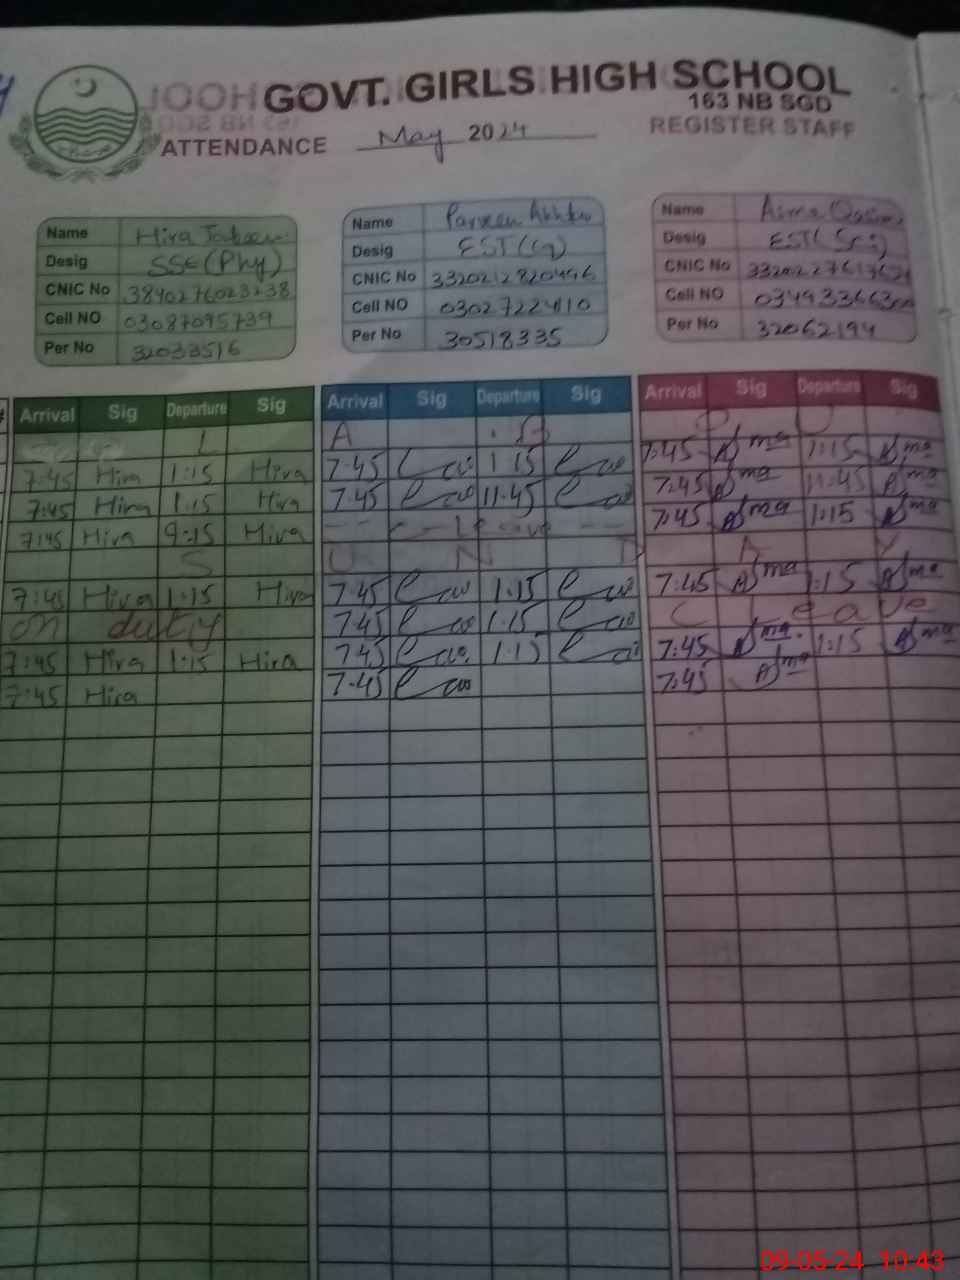 GOVT. GIRLS HIGH SCHOOL
163 NB SGD
ATTENDANCE May 2024 REGISTER STAFF
Name Hira Name Parveen Akhtar Name Asma
Desig SSE (Phy) Desig EST (Desig EST (Sci)
CNIC No 3840276023238 CNIC No 3320212820496 CNIC No
Cell NO 03087095739 Cell NO 03027224110 Cell NO
Per No 32033516 Per No 30518335 Per No 32062194
Arrival Sig Departure Sig Arrival Sig Departure Sig Arrival Sig Departure Sig
L A B O U
7:45 Hira 1:15 Hira 7:45 1:15 7:45 Asma 1:15 Asma
7:45 Hira 1:15 Hira 7:45 11:45 7:45 Asma 11:45 Asma
7:45 Hira 9:15 Hira Leave 7:45 Asma 1:15 Asma
S U N D A Y
7:45 Hira 1:15 Hira 7:45 1:15 7:45 Asma 1:15 Asma
on duty 7:45 1:15 C Leave
7:45 Hira 1:15 Hira 7:45 1:15 7:45 Asma 1:15 Asma
7:45 Hira 7:45 7:45 Asma
09-05-24 10:43